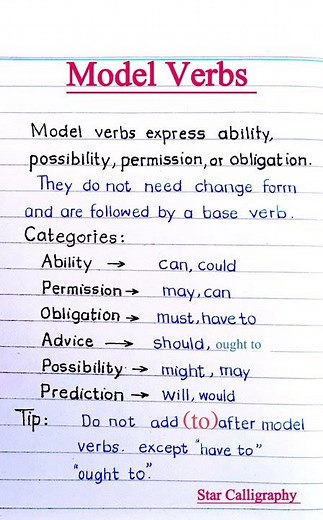 Model Verbs
Model verbs express ability,
possibility, permission, or obligation.
They do not need change form
and are followed by a base verb.
Categories:
Ability → can, could
Permission → may, can
Obligation → must, have to
Advice → should, ought to
Possibility → might, may
Prediction → will, would
Tip: Do not add (to) after model
verbs. except "have to"
"ought to".
Star Calligraphy